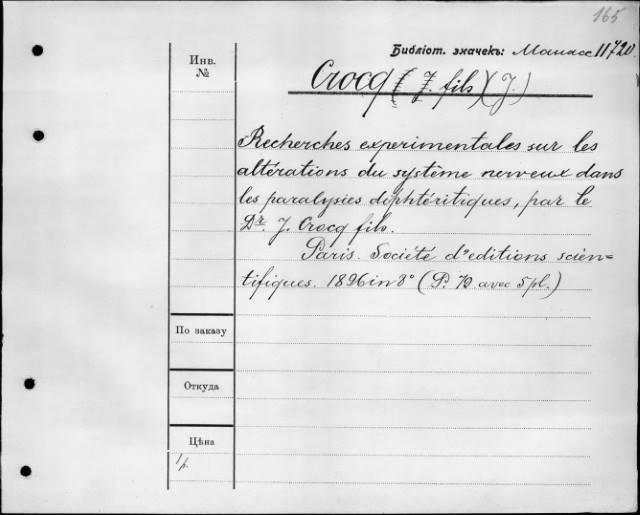 165
Библіот. значекъ: Манасс 11720.
Инв.
№
Crocq (J. fils) (J.)
Recherches experimentales sur les
altérations du système nerveux dans
les paralysies diphtéritiques, par le
Dr. J. Crocq fils.
Paris. Société d'editions scien=
tifiques. 1896 in 8° (P. 79 avec 5 pl.)
По заказу
Откуда
Цѣна